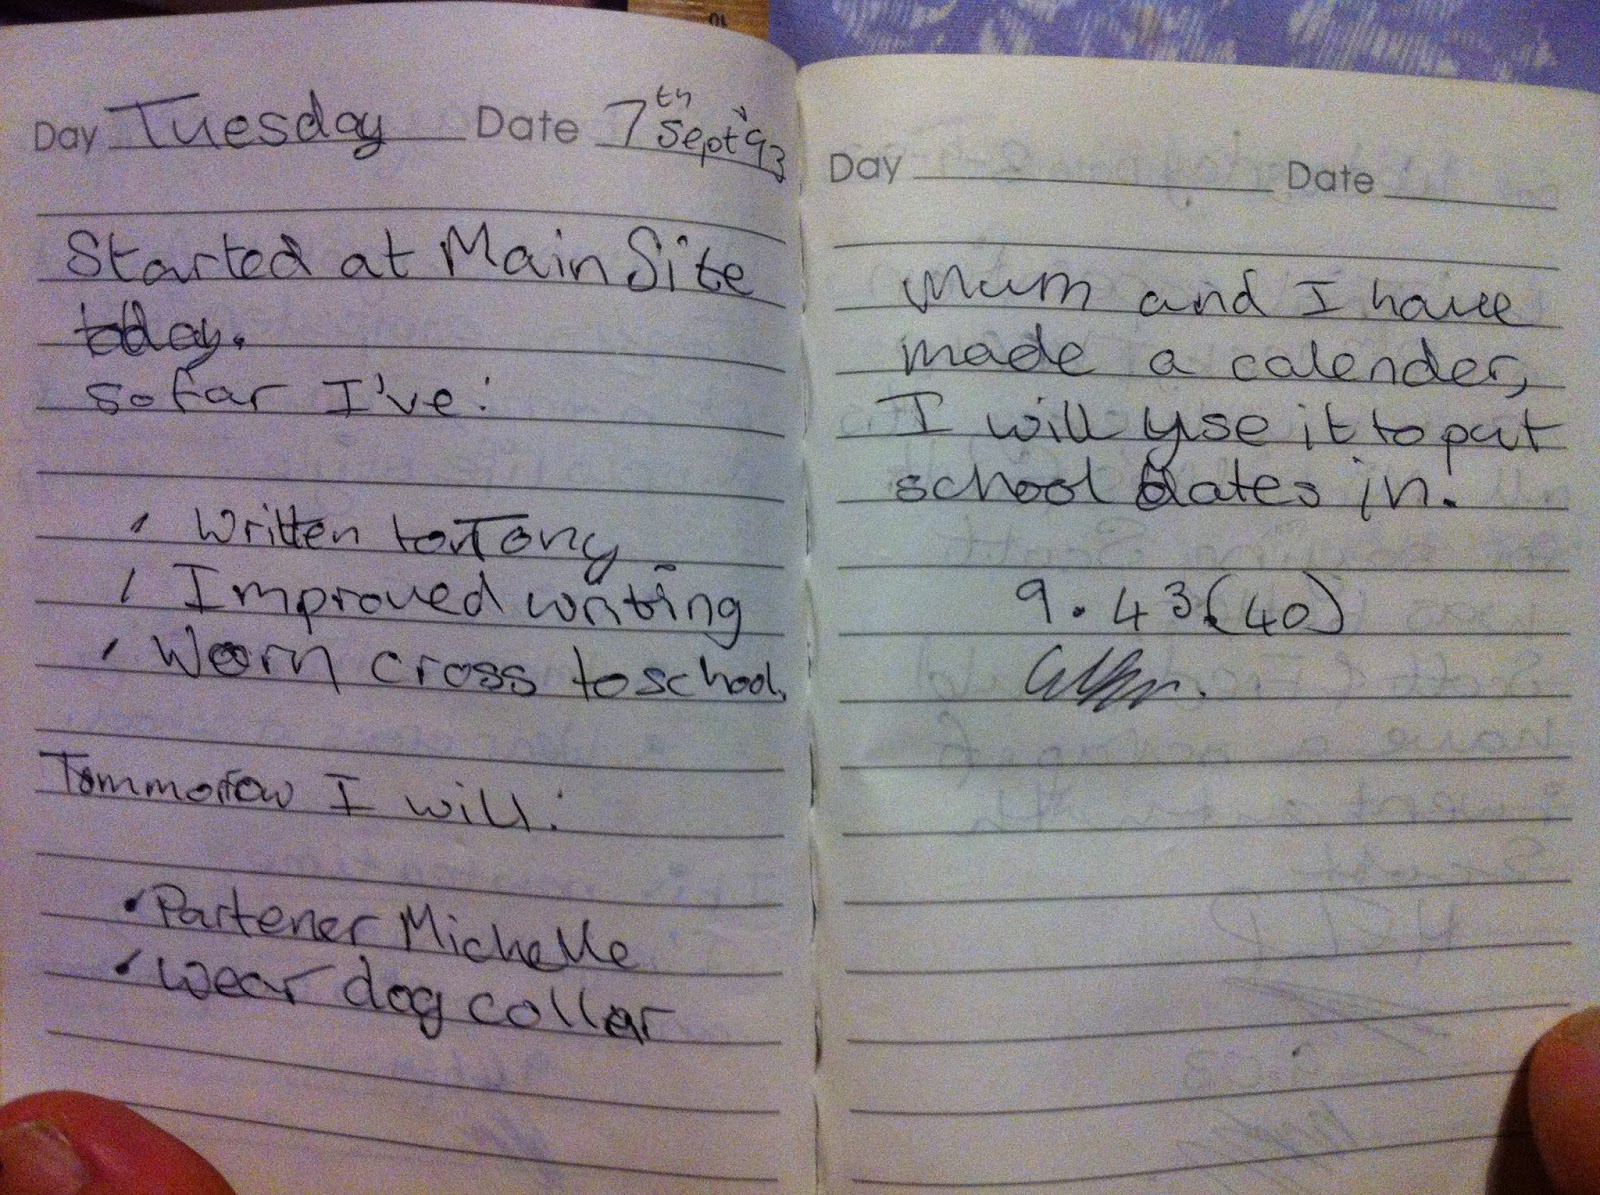 Day Tuesday Date 7th Sept '93
Started at Main Site
today.
so far I've:
Written to Tony
Improved writing
Worn cross to school.
Tommorow I will:
• Partener Michelle
• wear dog collar
Day Date
Mum and I have
made a calender,
I will use it to put
school dates in.
9.43(40)